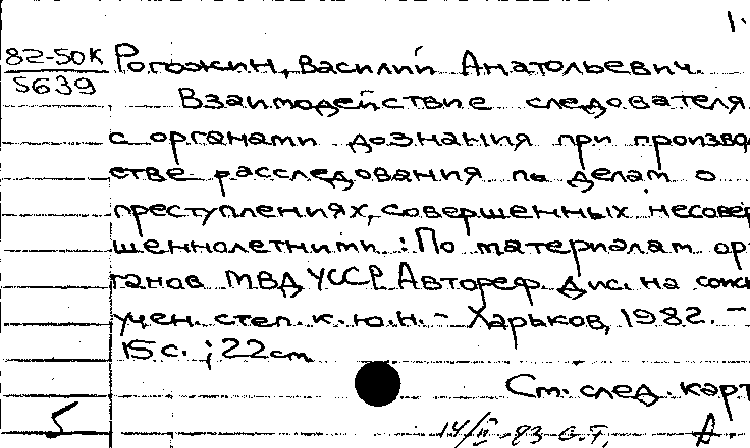 1.
82-50К Рогожин, Василий Анатольевич.
5639
Взаимодействие следователя
с органами дознания при произво
стве расследования по делам о
преступлениях, совершенных несовер
шеннолетними : По материалам ор
ганов МВД УССР. Автореф. дис. на соиск
учен. степ. к. ю. н. - Харьков, 1982. -
15 с. ; 22 см
См. след. карт
5 14/II-83 А